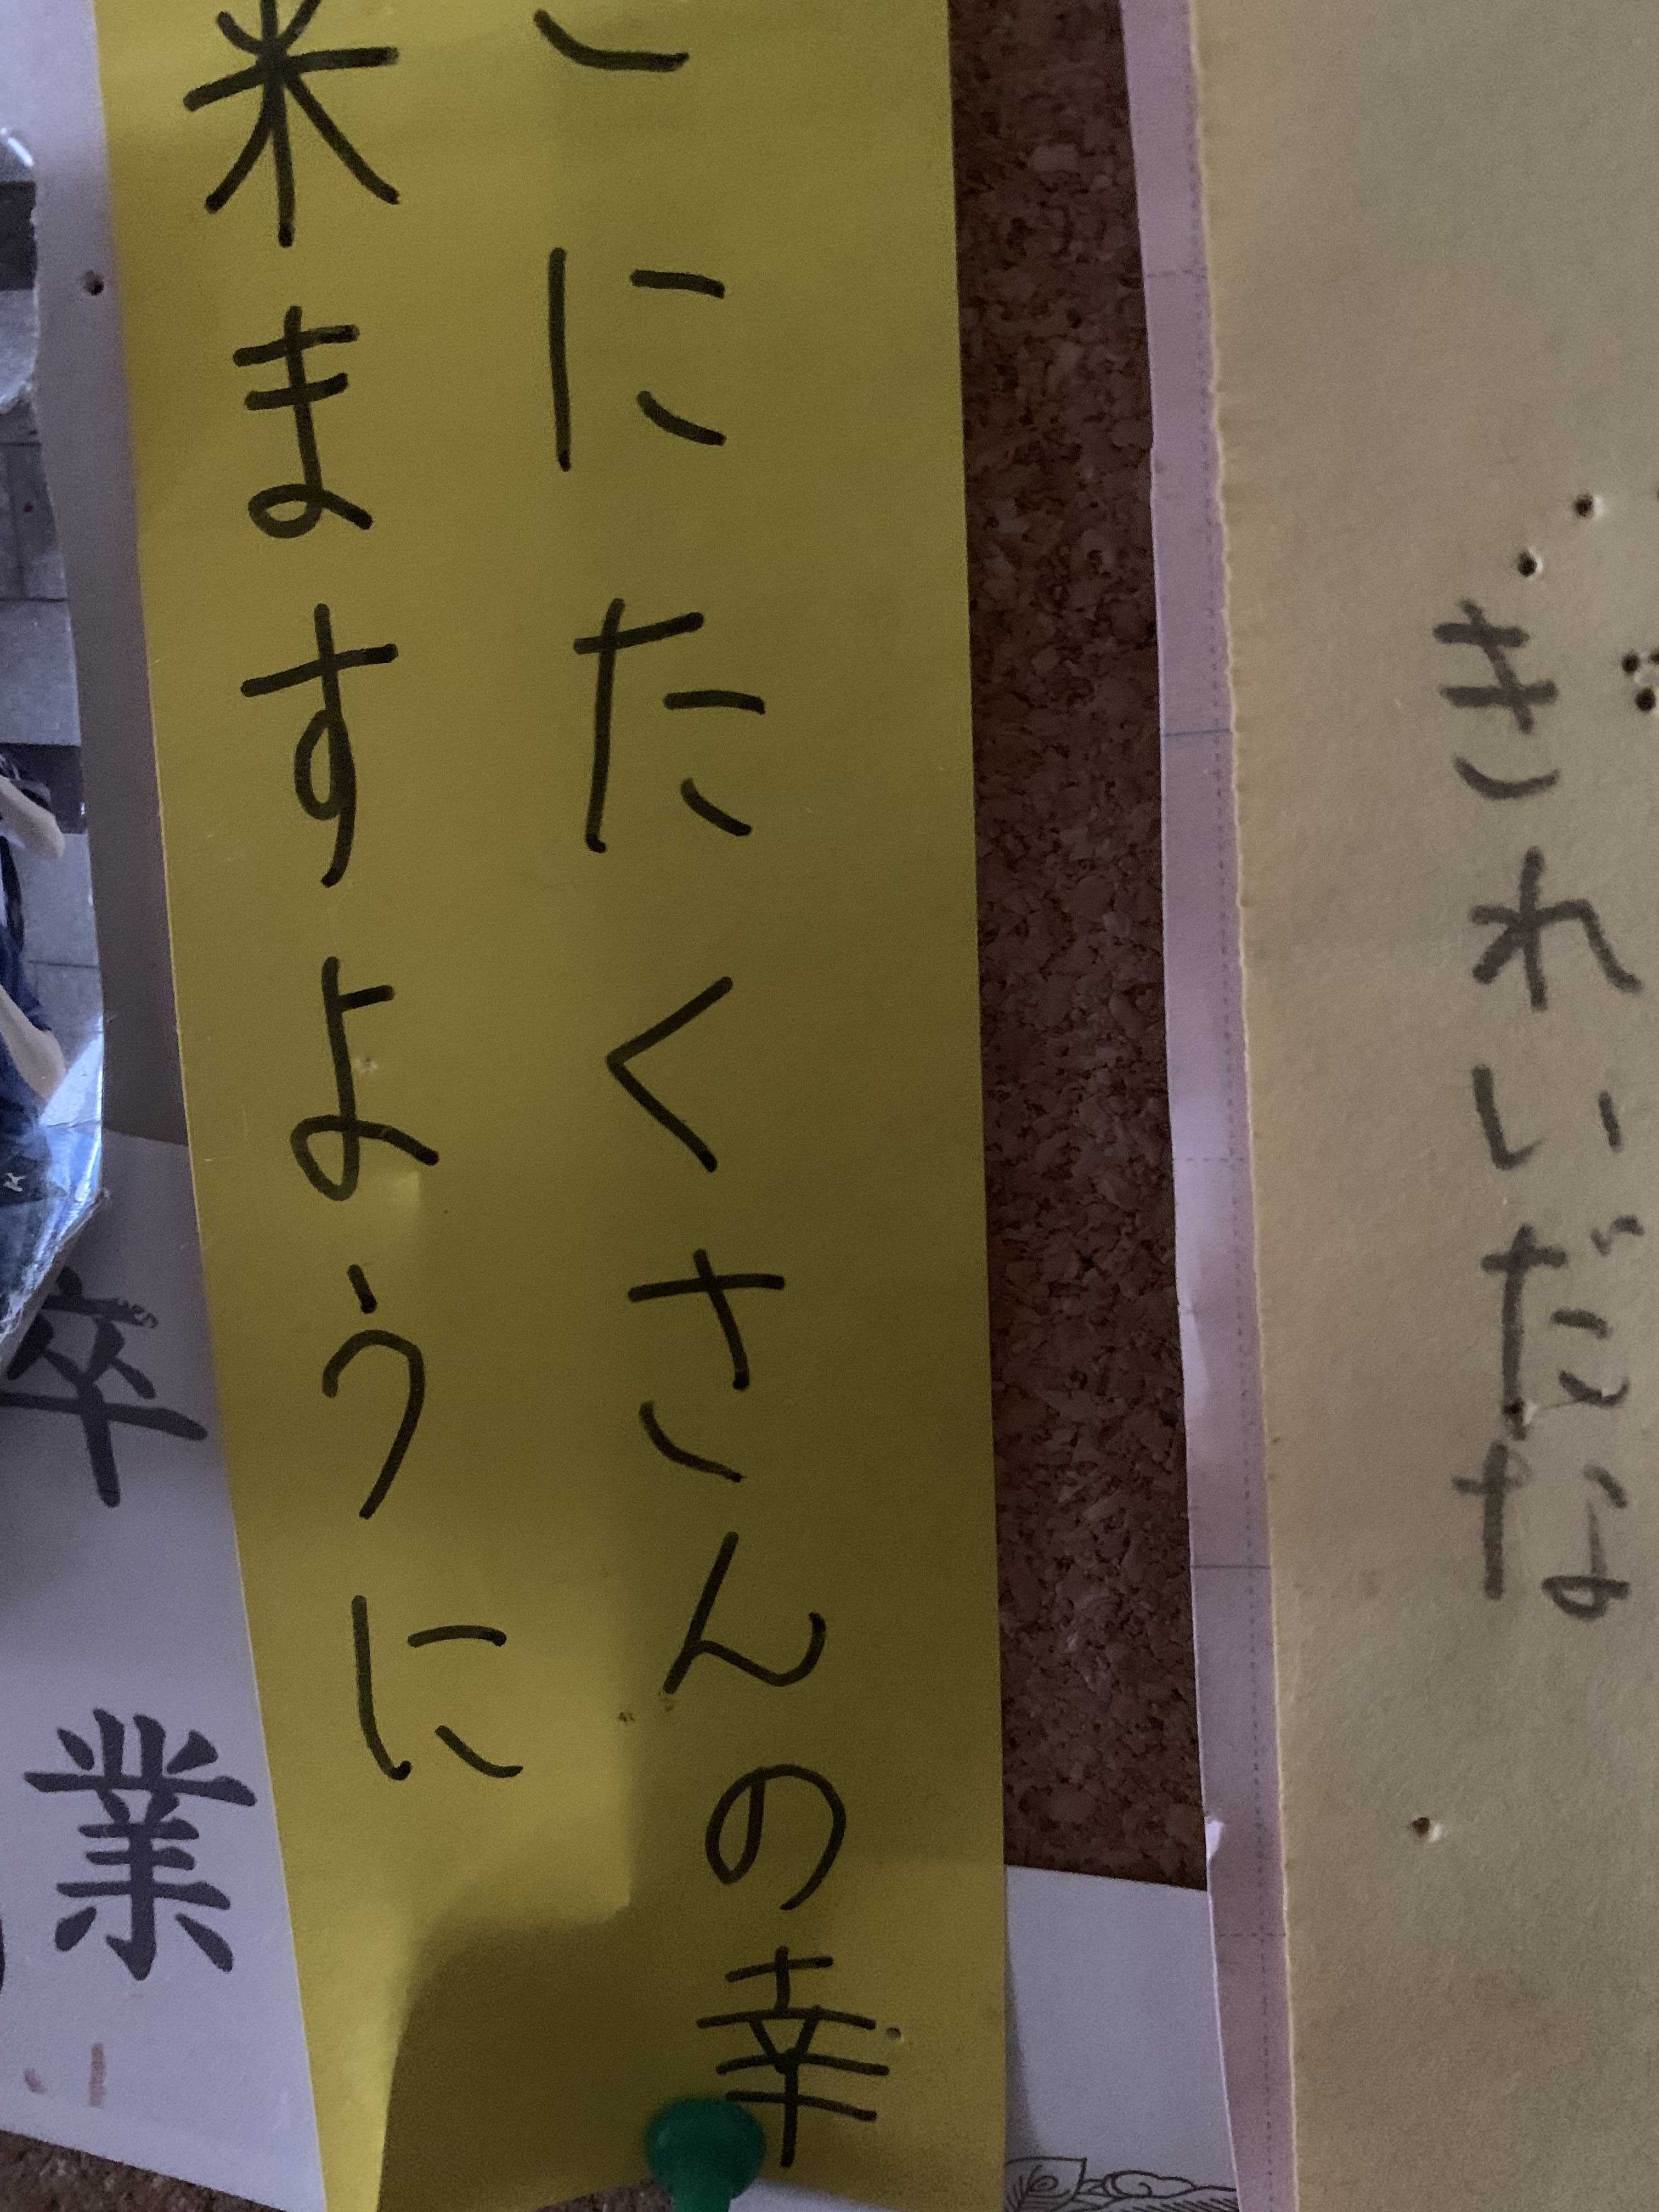 きれいだな
にたくさんの幸
来ますように
卒業